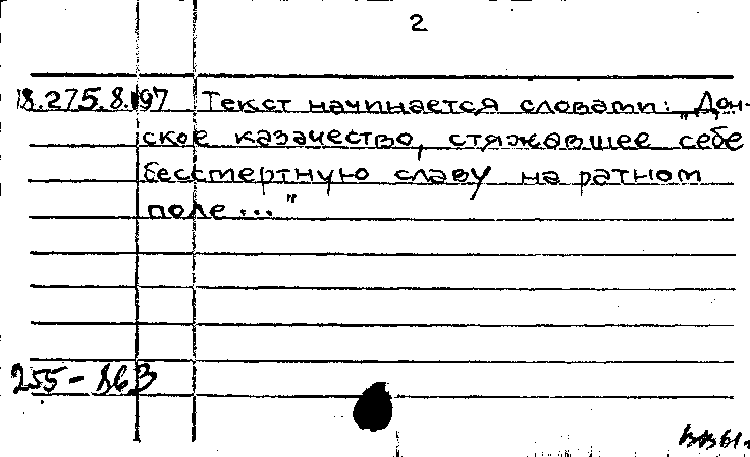 2
18.275.8.197 Текст начинается словами: „Дон-
ское казачество, стяжавшее себе
бессмертную славу на ратном
поле..."
255-863